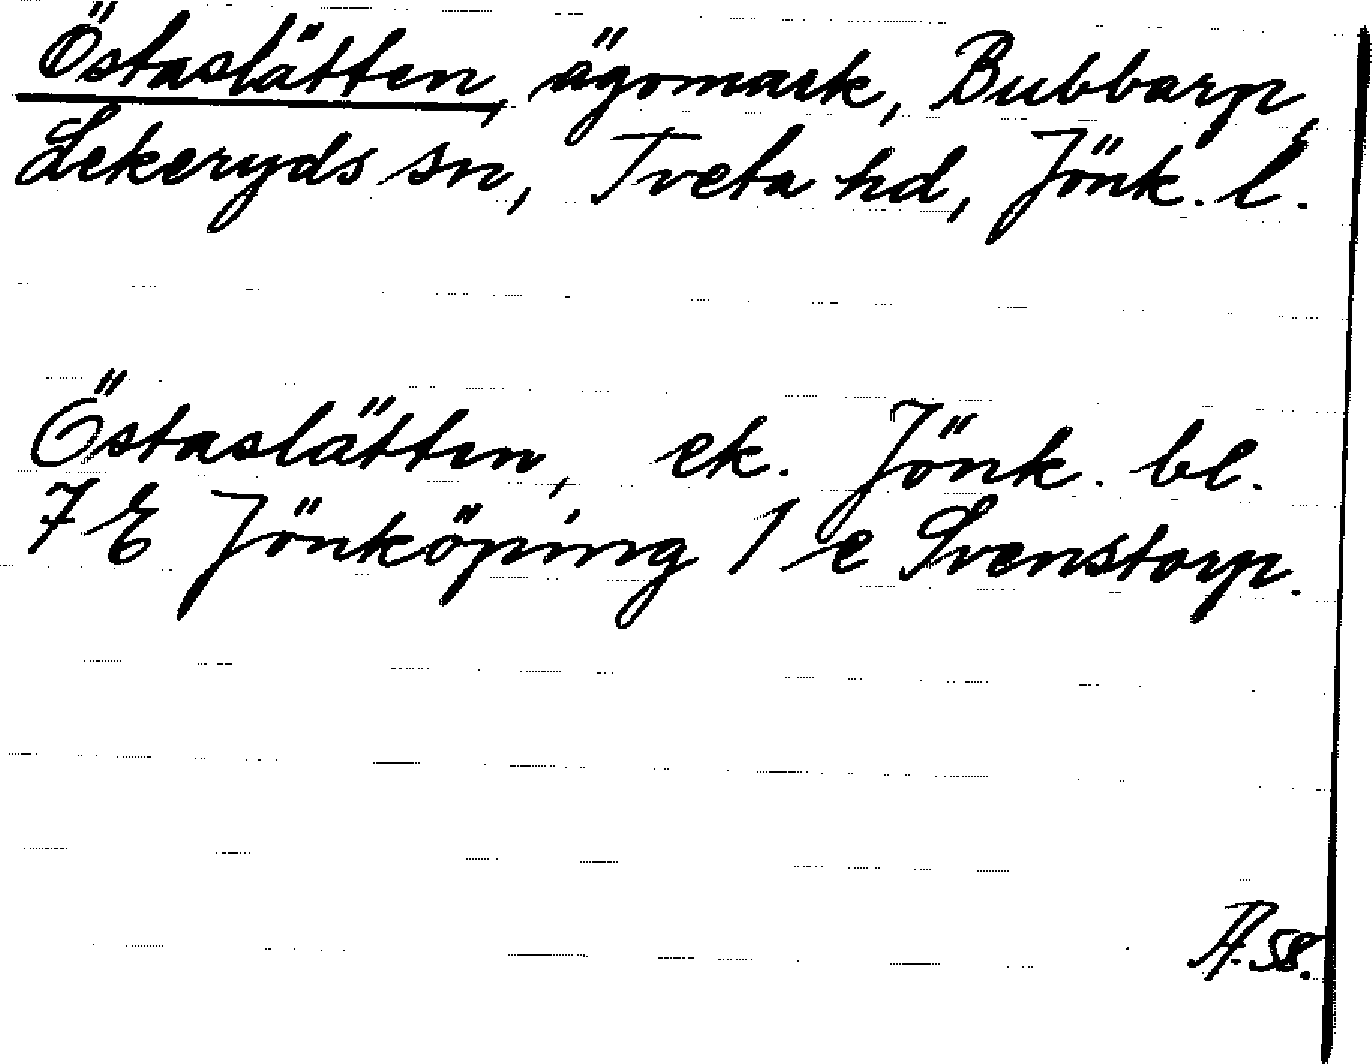 Östaslätten, ägomark, Bubbarp,
Lekeryds sn, Tveta hd, Jönk. l.
Östaslätten, ek. Jönk. bl.
7 E Jönköping 1 e Svenstorp.
58.